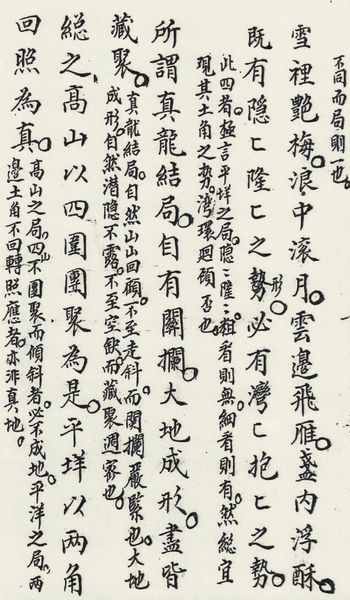 不同而局則一也。
雪裡艷梅。浪中滚月。雲邊飛雁。盞内浮酥。
既有隐匕隆匕之勢形。必有灣匕抱匕之勢。
此四者。極言平垟之局。隐〻隆〻。粗看則無。細看則有。然總宜
現其土角之勢。灣環迴顧否也。
所謂真龍結局。自有關攔。大地成形。盡皆
藏聚。真龍結局。自然山山回顧。不至走斜。而関攔嚴緊也。大地
成形。自然潜隐不露。不至空缺。而藏聚週密也。
總之高山以四圍團聚為是。平垟以兩角
回照為真。高山之局。四山不團聚而傾斜者。必不成地。平洋之局。兩
邊土角不回轉照應者。亦非真地。